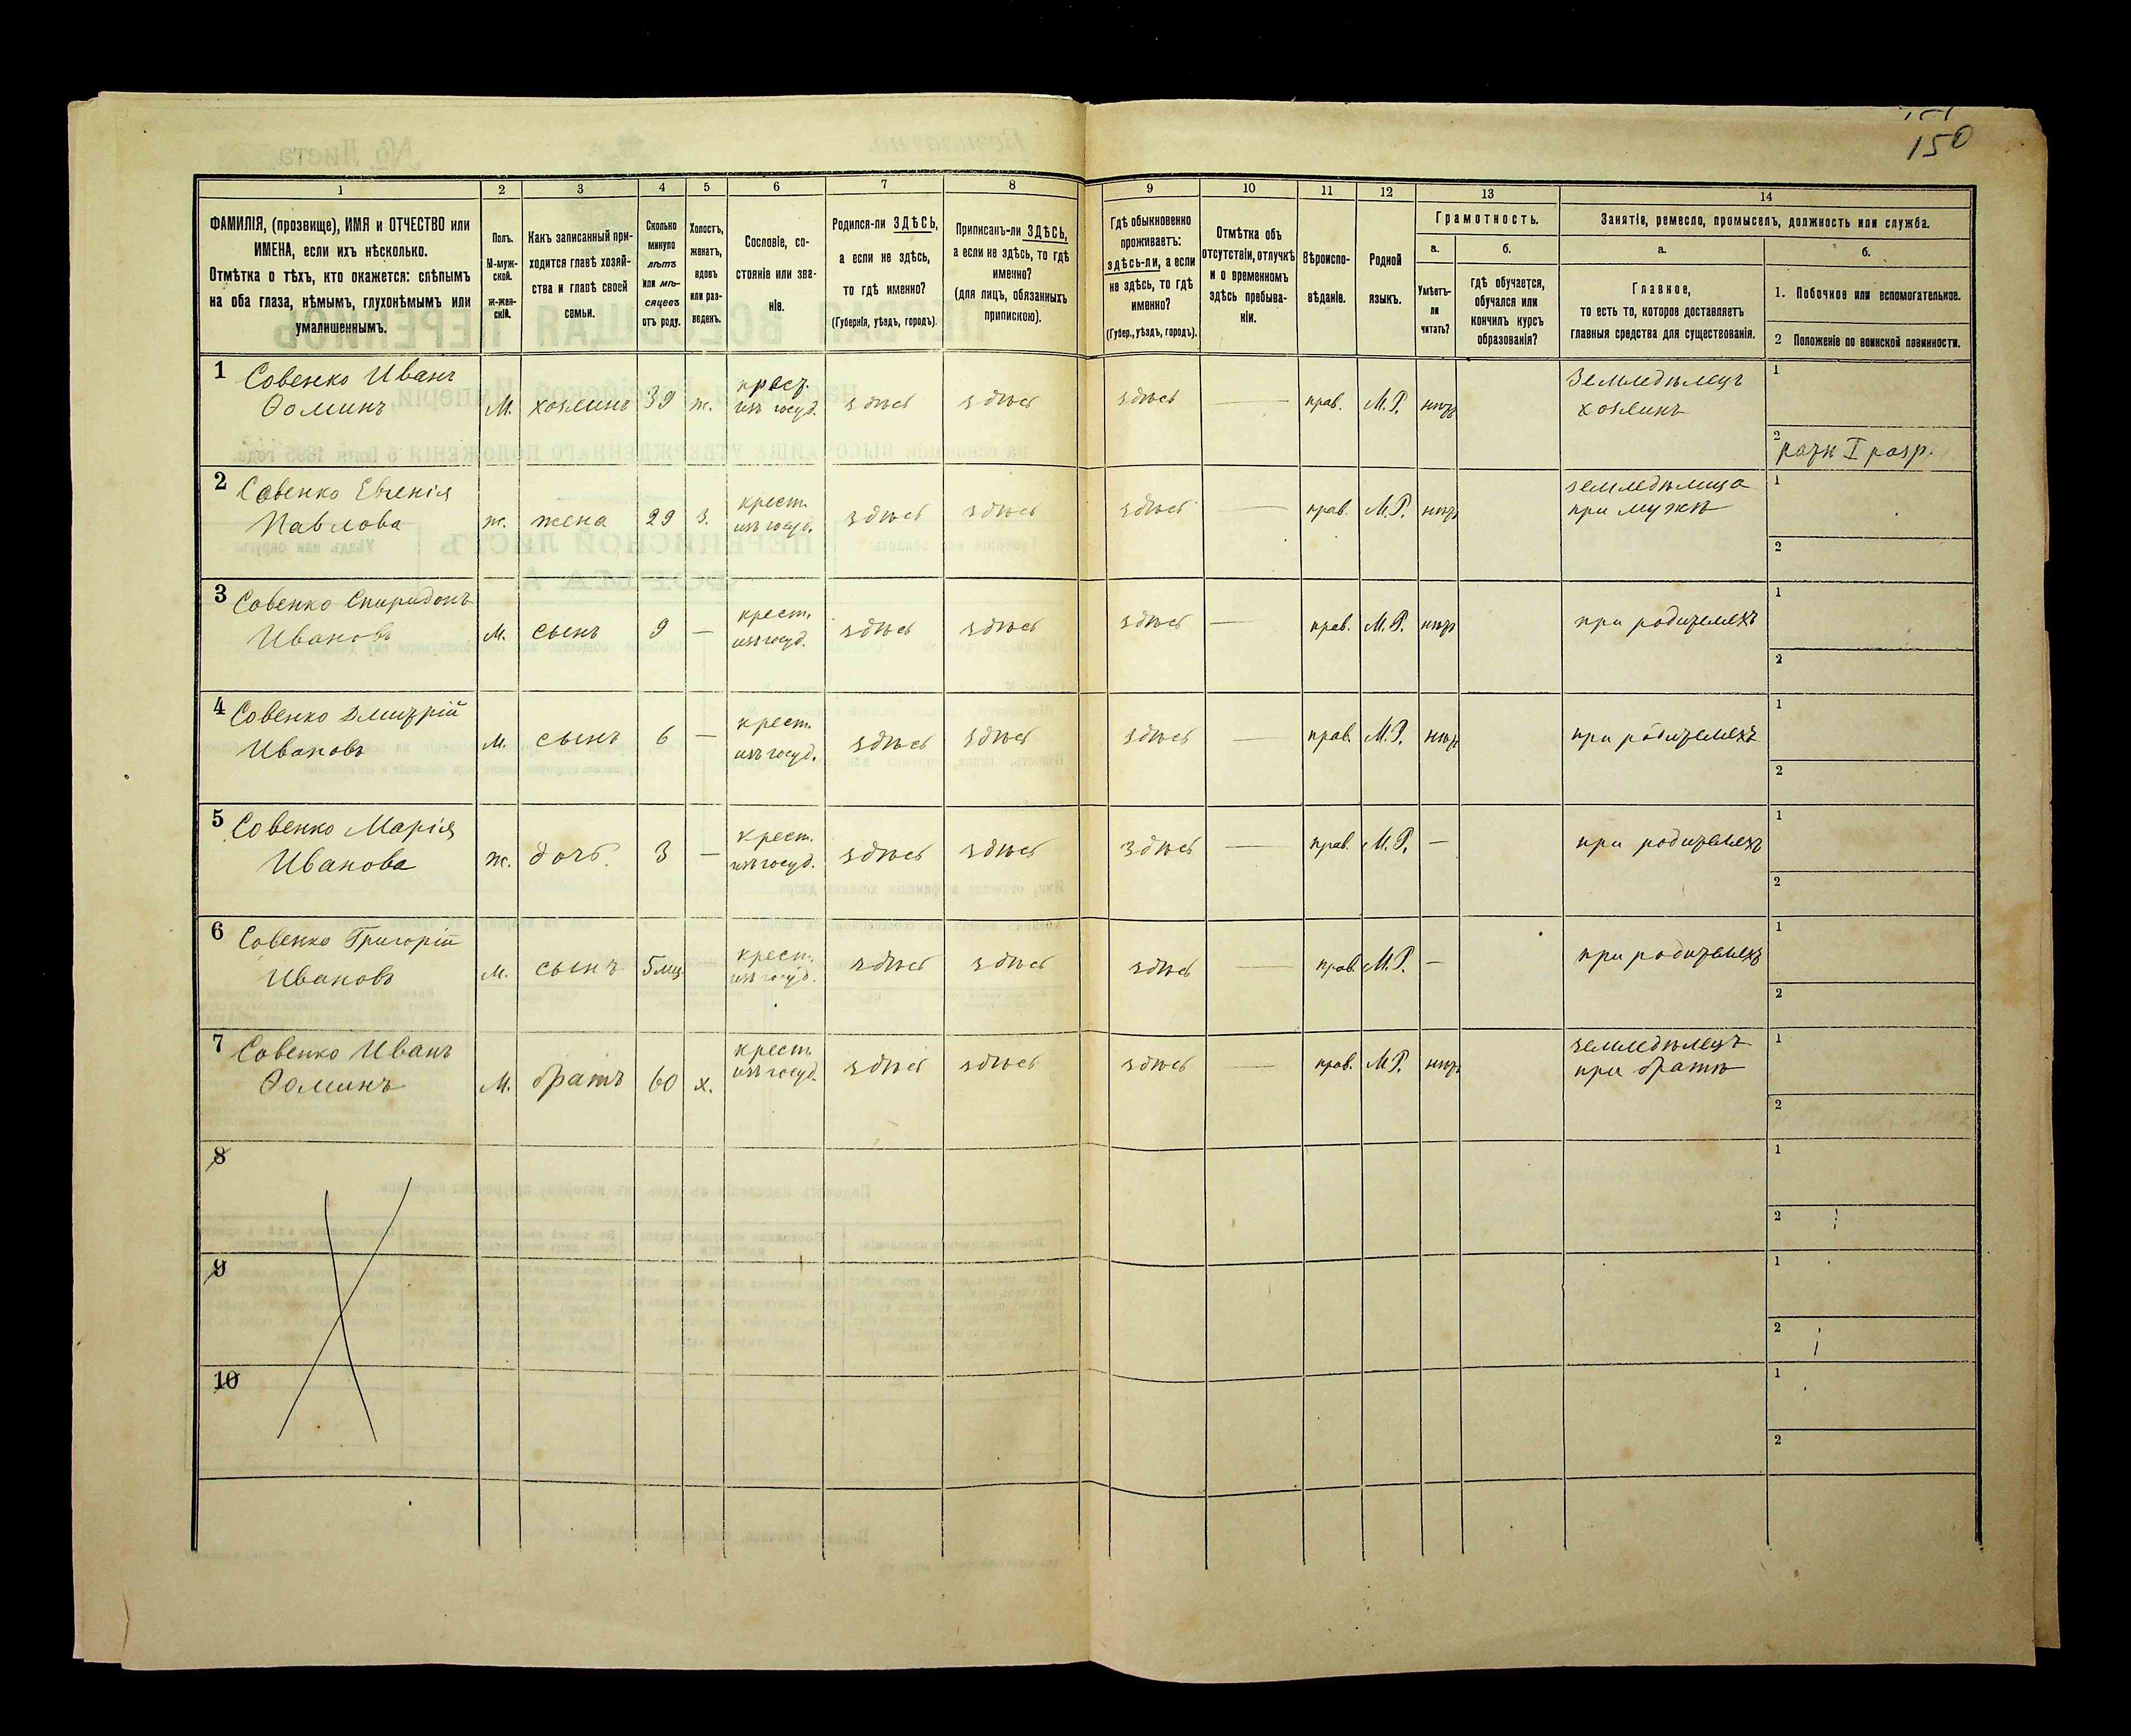 150
1
2
3
4
5
6
7
8
9
10
11
12
13
14
ФАМИЛІЯ, (прозвище), ИМЯ и ОТЧЕСТВО или
ИМЕНА, если ихъ нѣсколько.
Отмѣтка о тѣхъ, кто окажется: слѣпымъ
на оба глаза, нѣмымъ, глухонѣмымъ или
умалишеннымъ.
Полъ.
М-муж-
ской.
ж-жен-
скій.
Какъ записанный при-
ходится главѣ хозяй-
ства и главѣ своей
семьи.
Сколько
минуло
лѣтъ
или мѣ-
сяцевъ
отъ роду.
Холостъ,
женатъ,
вдовъ
или раз-
веденъ.
Сословіе, со-
стояніе или зва-
ніе.
Родился-ли ЗДѢСЬ,
а если не здѣсь,
то гдѣ именно?
(Губернія, уѣздъ, городъ).
Приписанъ-ли ЗДѢСЬ,
а если не здѣсь, то гдѣ
именно?
(для лицъ, обязанныхъ
припискою).
Гдѣ обыкновенно
проживаетъ:
здѣсь-ли, а если
не здѣсь, то гдѣ
именно?
(Губер., уѣздъ, городъ).
Отмѣтка объ
отсутствіи, отлучкѣ
и о временномъ
здѣсь пребыва-
ніи.
Вѣроиспо-
вѣданіе.
Родной
языкъ.
Грамотность.
а.
Умѣетъ-
ли
читать?
б.
гдѣ обучается,
обучался или
кончилъ курсъ
образованія?
Занятіе, ремесло, промыселъ, должность или служба.
а.
Главное,
то есть то, которое доставляетъ
главныя средства для существованія.
б.
1. Побочное или вспомогательное.
2 Положеніе по воинской повинности.
1 Совенко Иванъ
Ѳоминъ
М. хозяинъ 39 ж.
крест.
изъ госуд.
здѣсь здѣсь здѣсь — прав. М.Р. нѣтъ
Земледѣлецъ
хозяинъ
1
2
ратн I разр.
2 Совенко Евгенія
Павлова
ж. жена 29 з.
крест.
изъ госуд.
здѣсь здѣсь здѣсь — прав. М.Р. нѣтъ
земледѣлица
при мужѣ
1
2
3 Совенко Спиридонъ
Ивановъ
М. сынъ 9 —
крест.
изъ госуд.
здѣсь здѣсь здѣсь — прав. М.Р. нѣтъ
при родителяхъ
1
2
4 Совенко Дмитрій
Ивановъ
М. сынъ 6 —
крест.
изъ госуд.
здѣсь здѣсь здѣсь — прав. М.Р. нѣтъ
при родителяхъ
1
2
5 Совенко Марія
Иванова
ж. дочь 3 —
крест.
изъ госуд.
здѣсь здѣсь здѣсь — прав. М.Р. —
при родителяхъ
1
2
6 Совенко Григорій
Ивановъ
М. сынъ 5 мц —
крест.
изъ госуд.
здѣсь здѣсь здѣсь — прав. М.Р. —
при родителяхъ
1
2
7 Совенко Иванъ
Ѳоминъ
М. братъ 60 х.
крест.
изъ госуд.
здѣсь здѣсь здѣсь — прав. М.Р. нѣтъ
земледѣлецъ
при братѣ
1
2
8
1
2
9
1
2
10
1
2